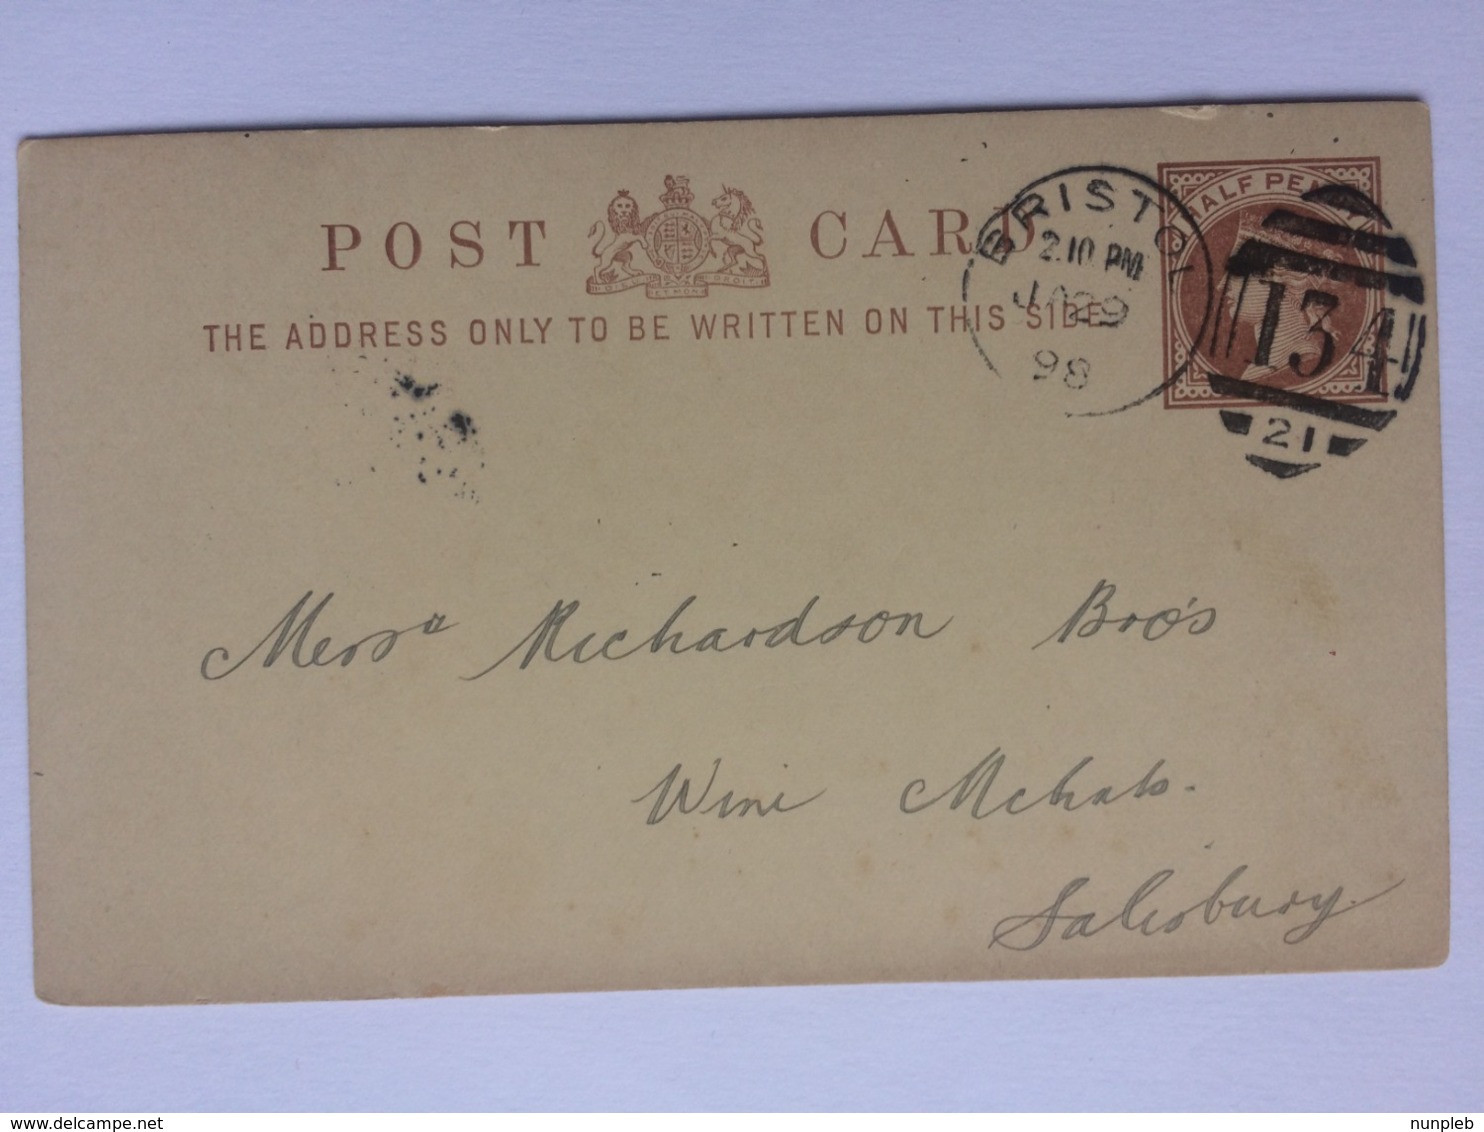 POST CARD
THE ADDRESS ONLY TO BE WRITTEN ON THIS SIDE
BRISTOL
2.10 PM
JA 29
98
HALF PENNY
134
21
DIEU ET MON DROIT
Messrs Richardson Bro's
Wine Mchats.
Salisbury.
nunpleb